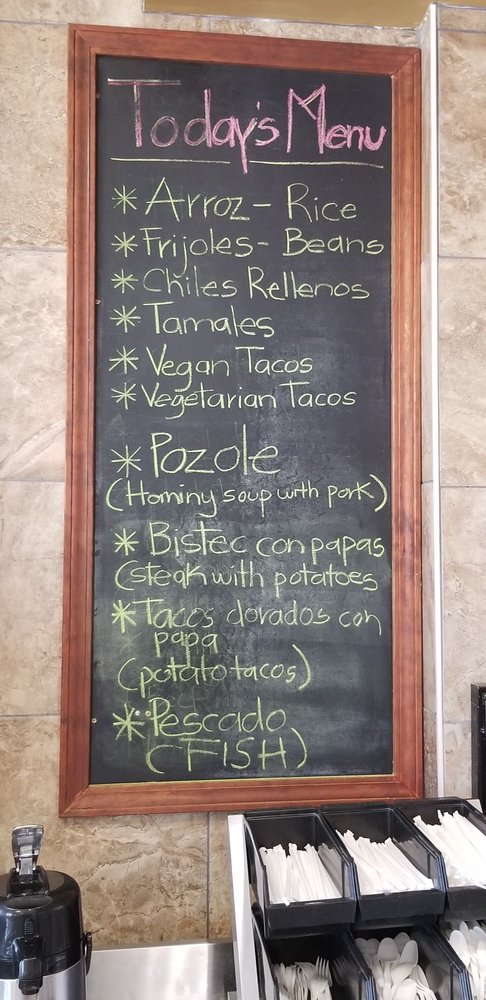 Today's Menu
* Arroz - Rice
* Frijoles - Beans
* Chiles Rellenos
* Tamales
* Vegan Tacos
* Vegetarian Tacos
* Pozole
(Hominy soup with pork)
* Bistec con papas
(steak with potatoes
* Tacos dorados con
papa
(potato tacos)
* Pescado
(FISH)